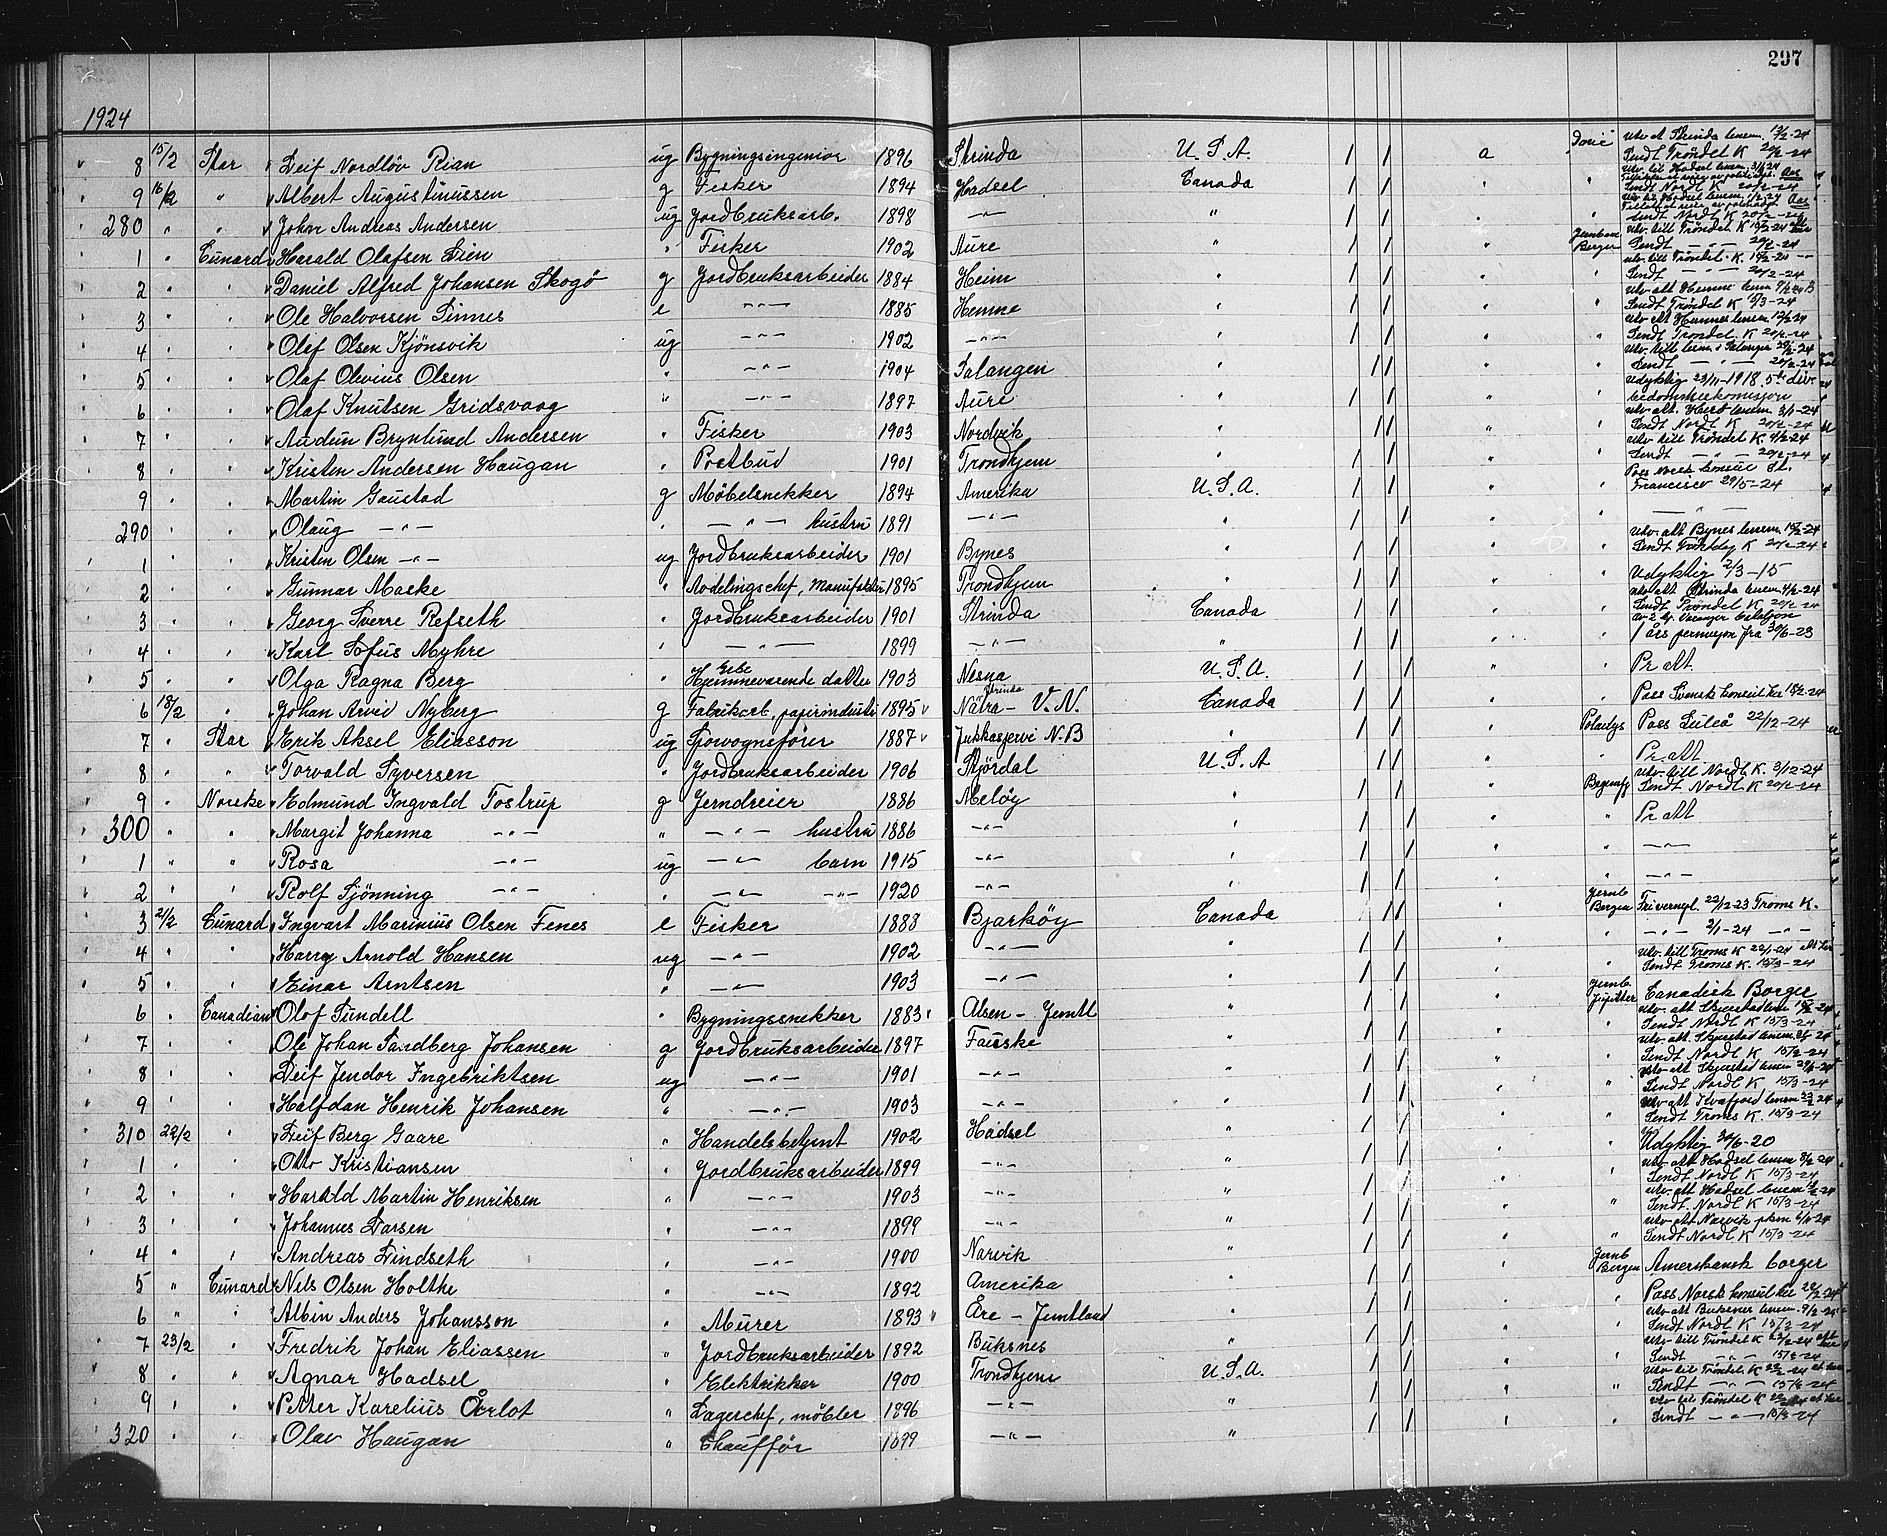 297
1924
8 15/2 Star Leif Nordlöv Rian ug Bygningsingeniør 1896 Strinda U.S.A. / / a Doric Utv. at Strinda lensm. 12/2-24 Sendt Trøndel. K 20/2-24
9 16/2 " Albert Augustinussen g Fisker 1894 Hadsel Canada / / " " Sendt Nordl K 20/2-24
280 " " Johan Andreas Andersen ug Jordbruksarb. 1898 -"- " / / " " Sendt Nordl K 20/2-24
1 " Cunard Harald Olafsen Lien " Fisker 1902 Aure " / / " Jernbane Bergen Utv. till Trøndel. K 19/2-24 Sendt -"- 20/2-24
2 " " Daniel Alfred Johansen Skogø g Jordbruksarbeider 1884 Heim " / / " " Utv. till Trøndel. K. Sendt -"- 20/2-24
3 " " Ole Halvorsen Sinnes e -"- 1885 Hemne " / / " " Utv. att Hemne lensm Sendt Trøndel K 5/3-24
4 " " Olaf Olsen Kjönsvik ug -"- 1902 -"- " / / " " Utv. att Hemnes lensm 12/2-24 Sendt Trøndel. K 20/2-24
5 " " Olaf Olevius Olsen " -"- 1904 Salangen " / / " " Utv. till lensm i Salangen 29/2-24 Sendt 20/2-24
6 " " Olaf Knutsen Gridsvaag " -"- 1897 Aure " / / " " Udyktig 23/11-1918 5te div. bedømmelseskomisjon
7 " " Audun Brynlund Andersen " Fisker 1903 Nordvik " / / " " Utv. att. lensm. 3/1-24 Sendt Nordl K 20/2-24
8 " " Kristen Andersen Haugan " Postbud 1901 Trondhjem " / / " " Utv till Trøndel K 4/2-24 Sendt -"- 20/2-24
9 " " Martin Gaustad g Møbelsnekker 1894 Amerika U.S.A. / / " " Pass Norsk konsul St. Francisco 29/5-24
290 " " Olaug -"- " -"- hustru 1891 -"- " / / " " -"-
1 " " Kristen Olsen -"- ug Jordbruksarbeider 1901 Bynes " / / " " Utv att Bynes lensm 15/2-24 Sendt Trøndelag K 20/2-24
2 " " Gunnar Maske " Avdelingschef, Manufaktur 1895 Trondhjem " / / " " Udyktig 2/3-15
3 " " Georg Sverre Refseth " Jordbruksarbeider 1901 Strinda Canada / / " " Utv att Strinda lensm 4/2-24 Sendt Trøndel K 20/2-24
4 " " Karl Sofus Myhre " -"- 1899 -"- " / / " " 1 års permisjon fra 30/6-23
5 " " Olga Ragna Berg " Hjemmeværende datter 1903 Nesna U.S.A. / / " " Pr att
6 18/2 " Johan Arvid Nyberg g Fabrikarb, papirindustri 1895 Nätra - V.N. Canada / / " " Pass Svensk konsul her 18/2-24
7 " Star Erik Aksel Eliasson ug Sporvognsfører 1887 Jukkasjervi N.B " / / " Polarlys Pass Luleå 22/12-24
8 " " Torvald Syversen " Jordbruksarbeider 1906 Stjördal U.S.A / / " " Pr att
9 " Norske Edmund Ingvald Tostrup g Jerndreier 1886 Meløy " / / " Bergensfj Utv. till Nordl K. 3/12-24 Sendt Nordl K 20/2-24
300 " " Margit Johanna -"- " -"- hustru 1886 -"- " / / " " Pr att
1 " " Rosa -"- ug -"- barn 1915 -"- " / / " " -"-
2 " " Rolf Sjönning -"- " -"- -"- 1920 -"- " / / " " -"-
3 21/2 Cunard Ingvart Marinius Olsen Fenes e Fisker 1888 Bjarköy Canada / / " Jernb Bergen Frivernepl. 22/12-23 Troms K.
4 " " Harry Arnold Hansen ug -"- 1902 -"- " / / " " -"- 2/1-24 -"-
5 " " Einar Arntsen " -"- 1903 -"- " / / " " Utv. till Troms K 22/1-24 Sendt Troms K. 15/3-24
6 " Canadian Olof Sundell " Bygningssnekker 1883 Alsen - Jemtl " / / " Jernb Jupitter Canadisk Borger
7 " " Ole Johan Sandberg Johansen g Jordbruksarbeider 1897 Fauske " / / " " Utv. att Skjerstad lensm Sendt Nordl K 15/3-24
8 " " Leif Jendor Ingebriktsen ug -"- 1901 -"- " / / " " Utv. att. Skjerstad lensm Sendt Nordl K 15/2-24
9 " " Halfdan Henrik Johansen " -"- 1903 -"- " / / " " Utv. att Skjerstad lensm Sendt Nordl K 15/3-24
310 22/2 " Leif Berg Gaare " Handelsbetjent 1902 Hadsel " / / " " Utv att Kvæfjord lensm Sendt Troms K 15/3-24
1 " " Otto Kristiansen " Jordbruksarbeider 1899 -"- " / / " " Udyktig 30/6-20
2 " " Harald Martin Henriksen " -"- 1903 -"- " / / " " Utv att Hadsel lensm 8/2-24 Sendt Nordl K 15/3-24
3 " " Johannes Larsen " -"- 1899 -"- " / / " " Utv. att Hadsel lensm Sendt Nordl K 15/3-24
4 " " Andreas Lindseth " -"- 1900 Narvik " / / " " Utv att Narvik Sendt Nordl K 15/3-24
5 " Cunard Nils Olsen Holthe " -"- 1892 Amerika " / / " Jernb Bergen Amerikansk borger
6 " " Albin Anders Johansson " Murer 1893 Åre - Jemtland " / / " " Pass Norsk konsul her 22/2-24
7 23/2 " Fredrik Johan Eliassen " Jordbruksarbeider 1892 Buksnes " / / " " Utv att Buksnes lensm 9/2-24 Sendt Nordl K 15/2-24
8 " " Agnar Hadsel " Elektrikker 1900 Trondhjem U.S.A. / / " " Utv till Trøndel K 22/2-24 Sendt -"- 15/3-24
9 " " Petter Karelius Årlot " Lagerchef, möbler 1896 -"- " / / " " Utv til Trøndel K 22/2-24 Sendt -"- 15/3-24
320 " " Olav Haugan " Chauffør 1899 -"- " / / " " Utv til Trøndel K Sendt -"- 15/3-24